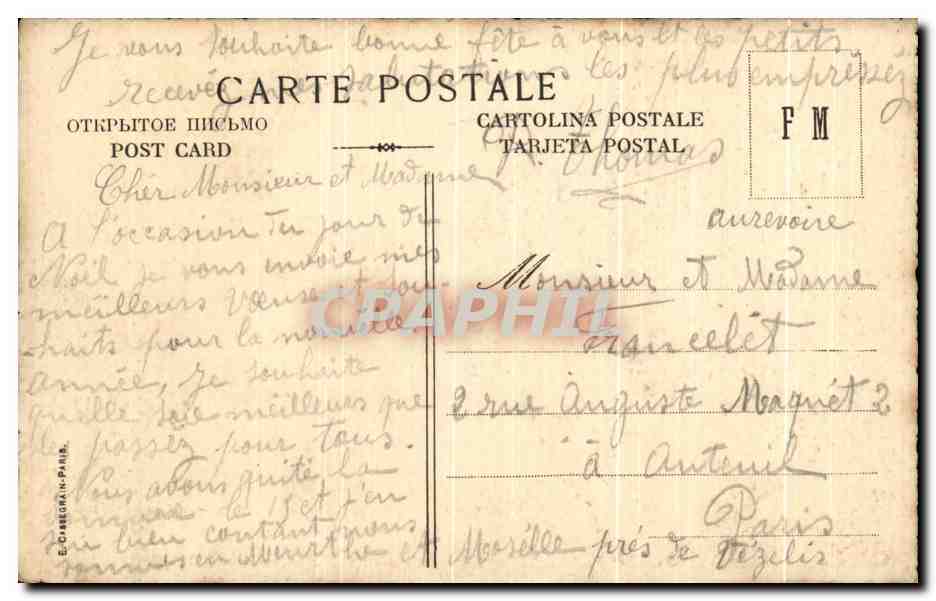 Je vous souhaite bonne fête à vous et les petits
recevéz mes salutations les plus empressez
CARTE POSTALE
ОТКРЫТОЕ ПИСЬМО
POST CARD
CARTOLINA POSTALE
TARJETA POSTAL
F M
Thomas
aurevoire
Cher Monsieur et Madame
A l'occasion du jour de
Noël je vous envoie mes
meilleurs voeuse et sou-
haits pour la nouvelle
année, je souhaite
quille soie meilleurs que
les passéz pour tous.
Nous avons quité la
le 15 et j'en
suis bien contant nous
sommes en Meurthe et Moselle prés de Vézelis
Monsieur et Madame
Francelét
2 rue Auguste Maquét 2
à Auteuil
Paris
E. CASSEGRAIN-PARIS.
CPAPHIL